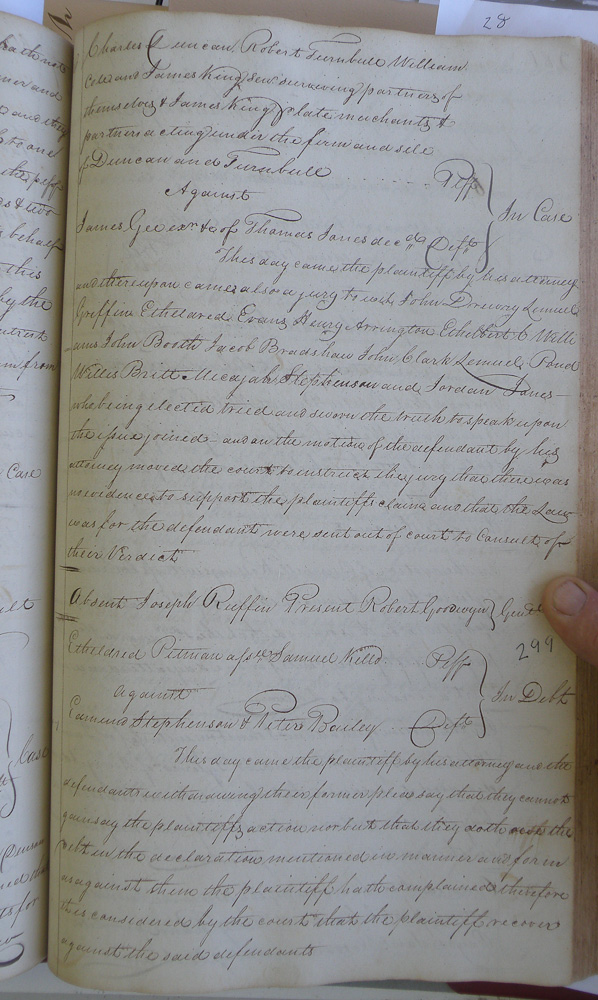 28
Charles Duncan Robert Turnbull William
Cole and James King Senr surviving partners of
themselves & James King Jr late merchants &
partners acting under the firm and stile
of Duncan and Turnbull ...... Plff
Against
In Case
James Gee exr &c of Thomas Jones decd Deft
This day came the plaintiff by his attorney
and thereupon came also a jury to wit John Drewry Lemuel
Griffin Etheldred Evans Henry Arrington Ethelbert C Willi
ams John Booth Jacob Bradshaw John Clark Lemuel Pond
Willis Britt Micajah Stephenson and Jordan Jones
who being elected tried and sworn the truth to speak upon
the issue joined and on the motion of the defendant by his
attorney moved the court to instruct the jury that there was
no evidence to support the plaintiffs claim and that the Law
was for the defendant were sent out of court to Consult of
their Verdict
Absent Joseph Ruffin Present Robert Goodwyn} Gent
299
Etheldred Pitman assee Samuel Kello .. Plff
against
In Debt
Stephenson & Peter Bailey ... Defts
This day came the plaintiff by his attorney and the
defendants withdrawing their former plea say that they cannot
gainsay the plaintiffs action nor but that they doth owe the
debt in the declaration mentioned in manner and form
as against them the plaintiff hath complained therefore
tis considered by the court that the plaintiff recover
against the said defendants